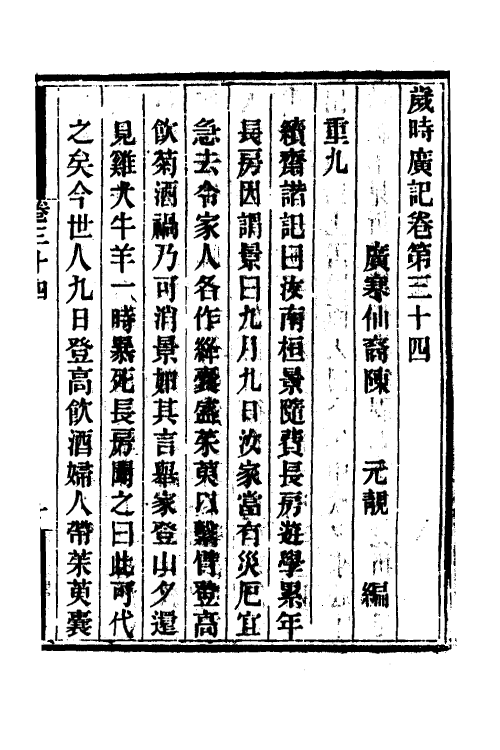 歲時廣記卷第三十四
廣寒仙裔陳 元靚 編
重九
續齋諧記曰汝南桓景隨費長房遊學累年
長房因謂景曰九月九日汝家當有災厄宜
急去令家人各作絳囊盛茱萸以繫臂登高
飲菊酒禍乃可消景如其言舉家登山夕還
見雞犬牛羊一時暴死長房聞之曰此可代
之矣今世人九日登高飲酒婦人帶茱萸囊
卷三十四